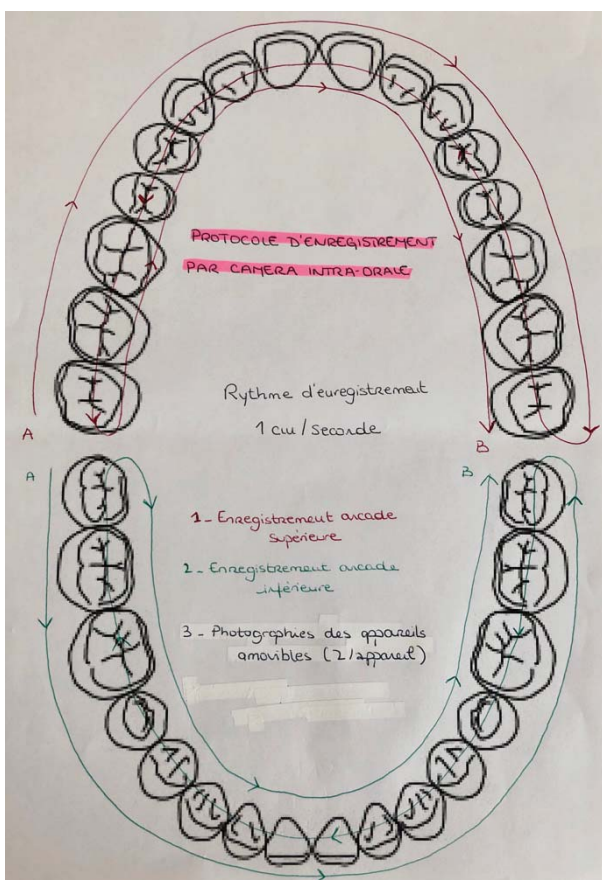 PROTOCOLE D'ENREGISTREMENT
PAR CAMERA INTRA-ORALE
Rythme d'enregistrement
1 cm / seconde
A
B
A
B
1 - Enregistrement arcade
supérieure
2 - Enregistrement arcade
inférieure
3 - Photographies des appareils
amovibles (2/appareil)